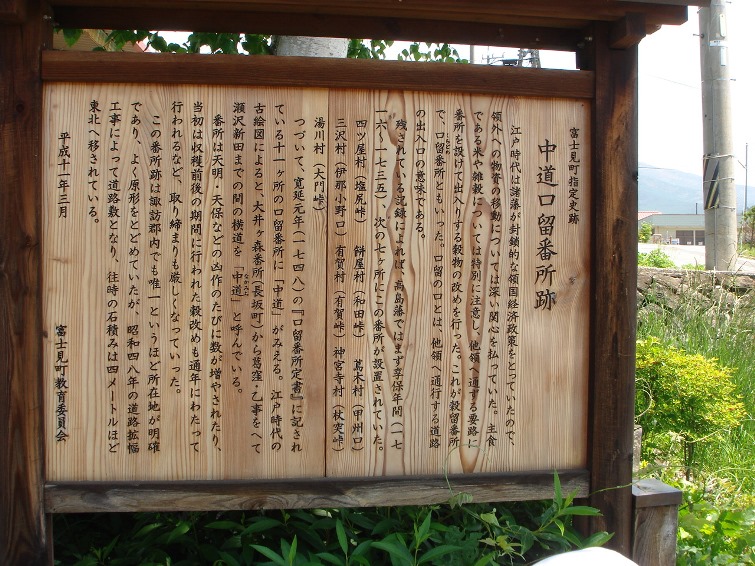 富士見町指定史跡
中道口留番所跡
江戸時代は諸藩が封鎖的な領国経済政策をとっていたので、
領外への物資の移動については深い関心を払っていた。主食
である米や雑穀については特別に注意し、他領へ通する要路に
番所を設けて出入りする穀物の改めを行った。これが穀留番所
で、口留番所ともいった。口留の口とは、他領へ通行する道路
の出入口の意味である。
残されている記録によれば、高島藩ではまず享保年間(一七
一六〜一七三五)、次の七ヶ所にこの番所が設置されていた。
四ッ屋村(塩尻峠) 餅屋村(和田峠) 蔦木村(甲州口)
三沢村(伊那小野口) 有賀村(有賀峠) 神宮寺村(杖突峠)
湯川村(大門峠)
つづいて、寛延元年(一七四八)の『口留番所定書』に記され
ている十一ヶ所の口留番所に「中道」がみえる。江戸時代の
古絵図によると、大井ヶ森番所(長坂町)から葛窪・乙事をへて
瀬沢新田までの間の横道を「中道」と呼んでいる。
なかみち
番所は天明・天保などの凶作のたびに数が増やされたり、
当初は収穫前後の期間に行われた穀改めも通年にわたって
行われるなど、取り締まりも厳しくなっていった。
この番所跡は諏訪郡内でも唯一というほど所在地が明確
であり、よく原形をとどめていたが、昭和四八年の道路拡幅
工事によって道路敷となり、往時の石積みは四メートルほど
東北へ移されている。
平成十一年三月
富士見町教育委員会